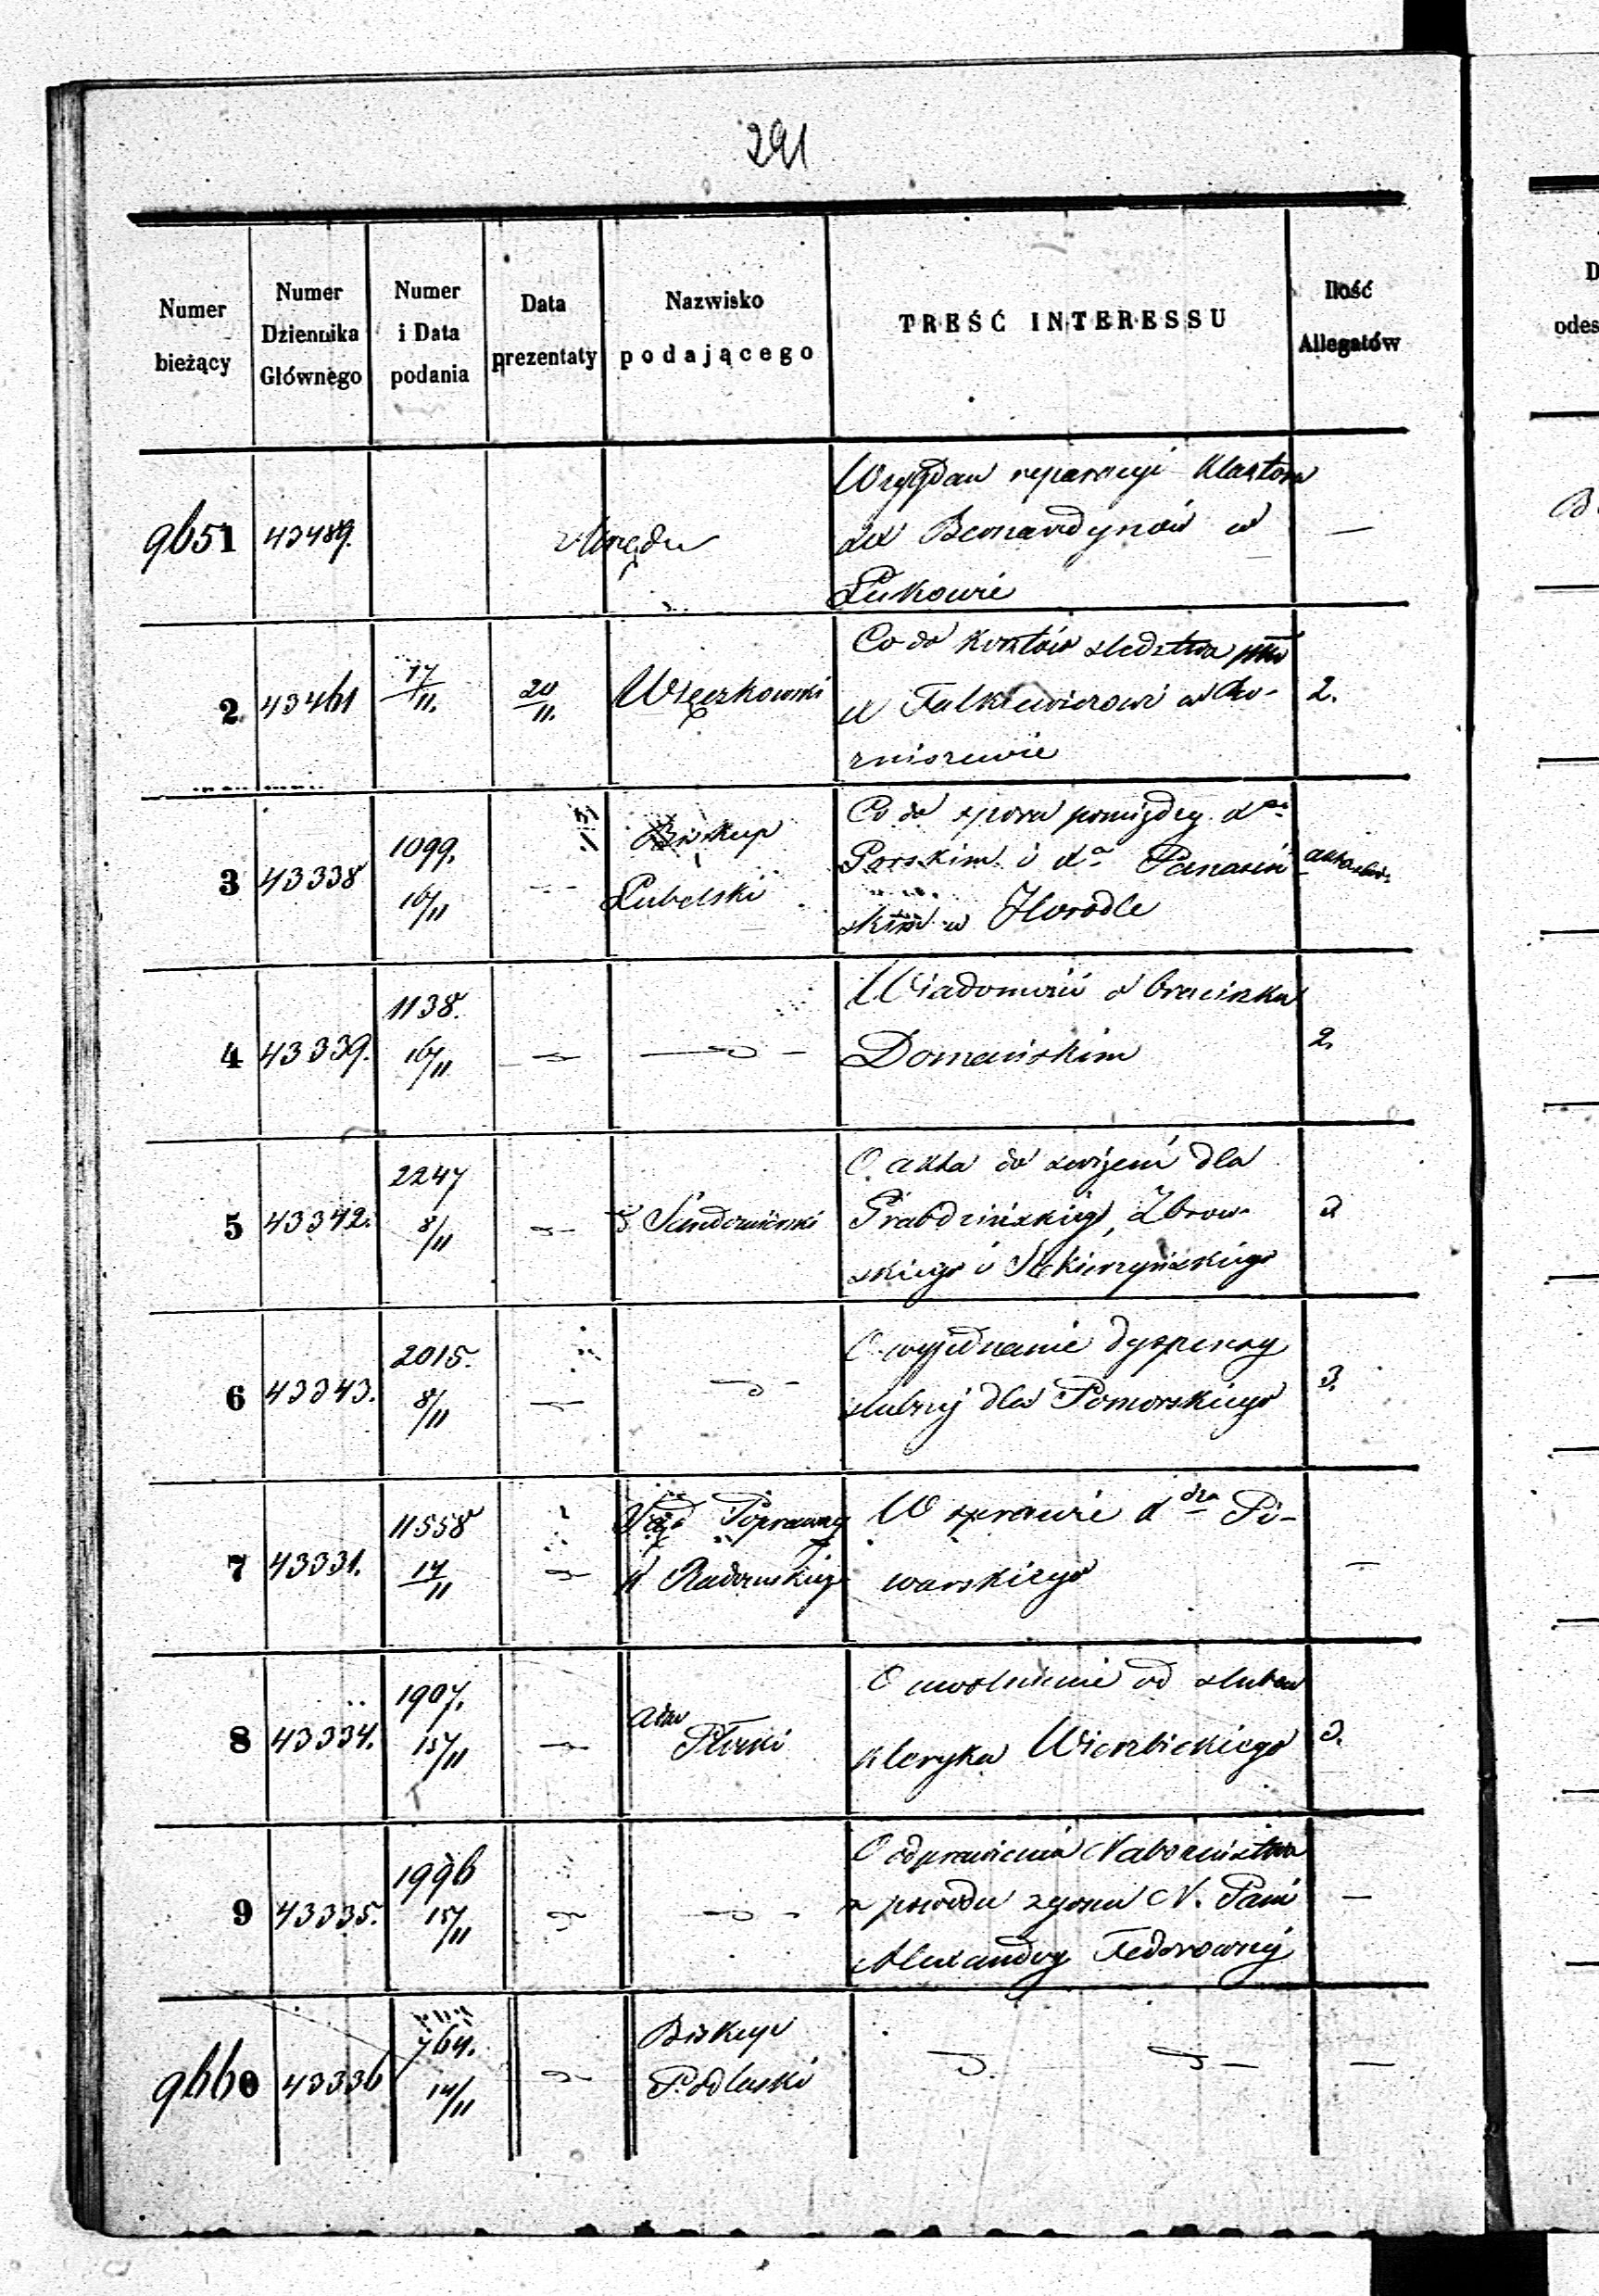 291
Numer bieżący
Numer Dziennika Głównego
Numer i Data podania
Data prezentaty
Nazwisko podającego
TREŚĆ INTERESSU
Ilość Allegatów
9651 43489. z Urzędu
Względem reparacyi Klasztoru
XX Bernardynów w —
Łukowie
2 43461 17/11. 20/11. Więczkowski
Co do kosztów śledztwa
X Falkiewiczowi w 2.
3 43338 1099. 16/11 Biskup Lubelski
Co do sporu pomiędzy
Porskim i
w Horodle
4 43339. 1138. 16/11 — —
Wiadomość o braciszku
Domańskim 2.
5 43342. 2247 8/11 — Sandomirski
O akta do dla
Grabdzińskiego, Zbrow-
skiego i
6 43343. 2015. 8/11 — —
O wyjednanie dyspensy
ślubnej dla Pomorskiego 3.
7 43331. 11558 14/11 — Sąd Poprawczy
W. Radomskiego
W sprawie Xdza Pi-
warskiego —
8 43334. 1907. 15/11 — Adm Płocki
O uwolnienie od ślubów
kleryka Wierzbickiego 3.
9 43335. 1996 15/11 — —
O odprawienia Nabożeństwa
z powodu zgonu N. Pani —
Alexandry Fedorowny
9660 43336 764. 14/11 — Biskup
Podlaski — — —
D
odes
B